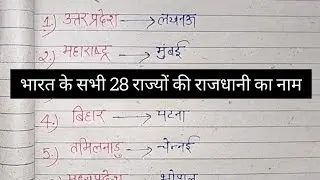 1) उत्तर प्रदेश → लखनऊ
2.) महाराष्ट्र → मुंबई
भारत के सभी 28 राज्यों की राजधानी का नाम
4.) बिहार → पटना
5.) तमिलनाडु → चेन्नई
मध्यप्रदेश → भोपाल